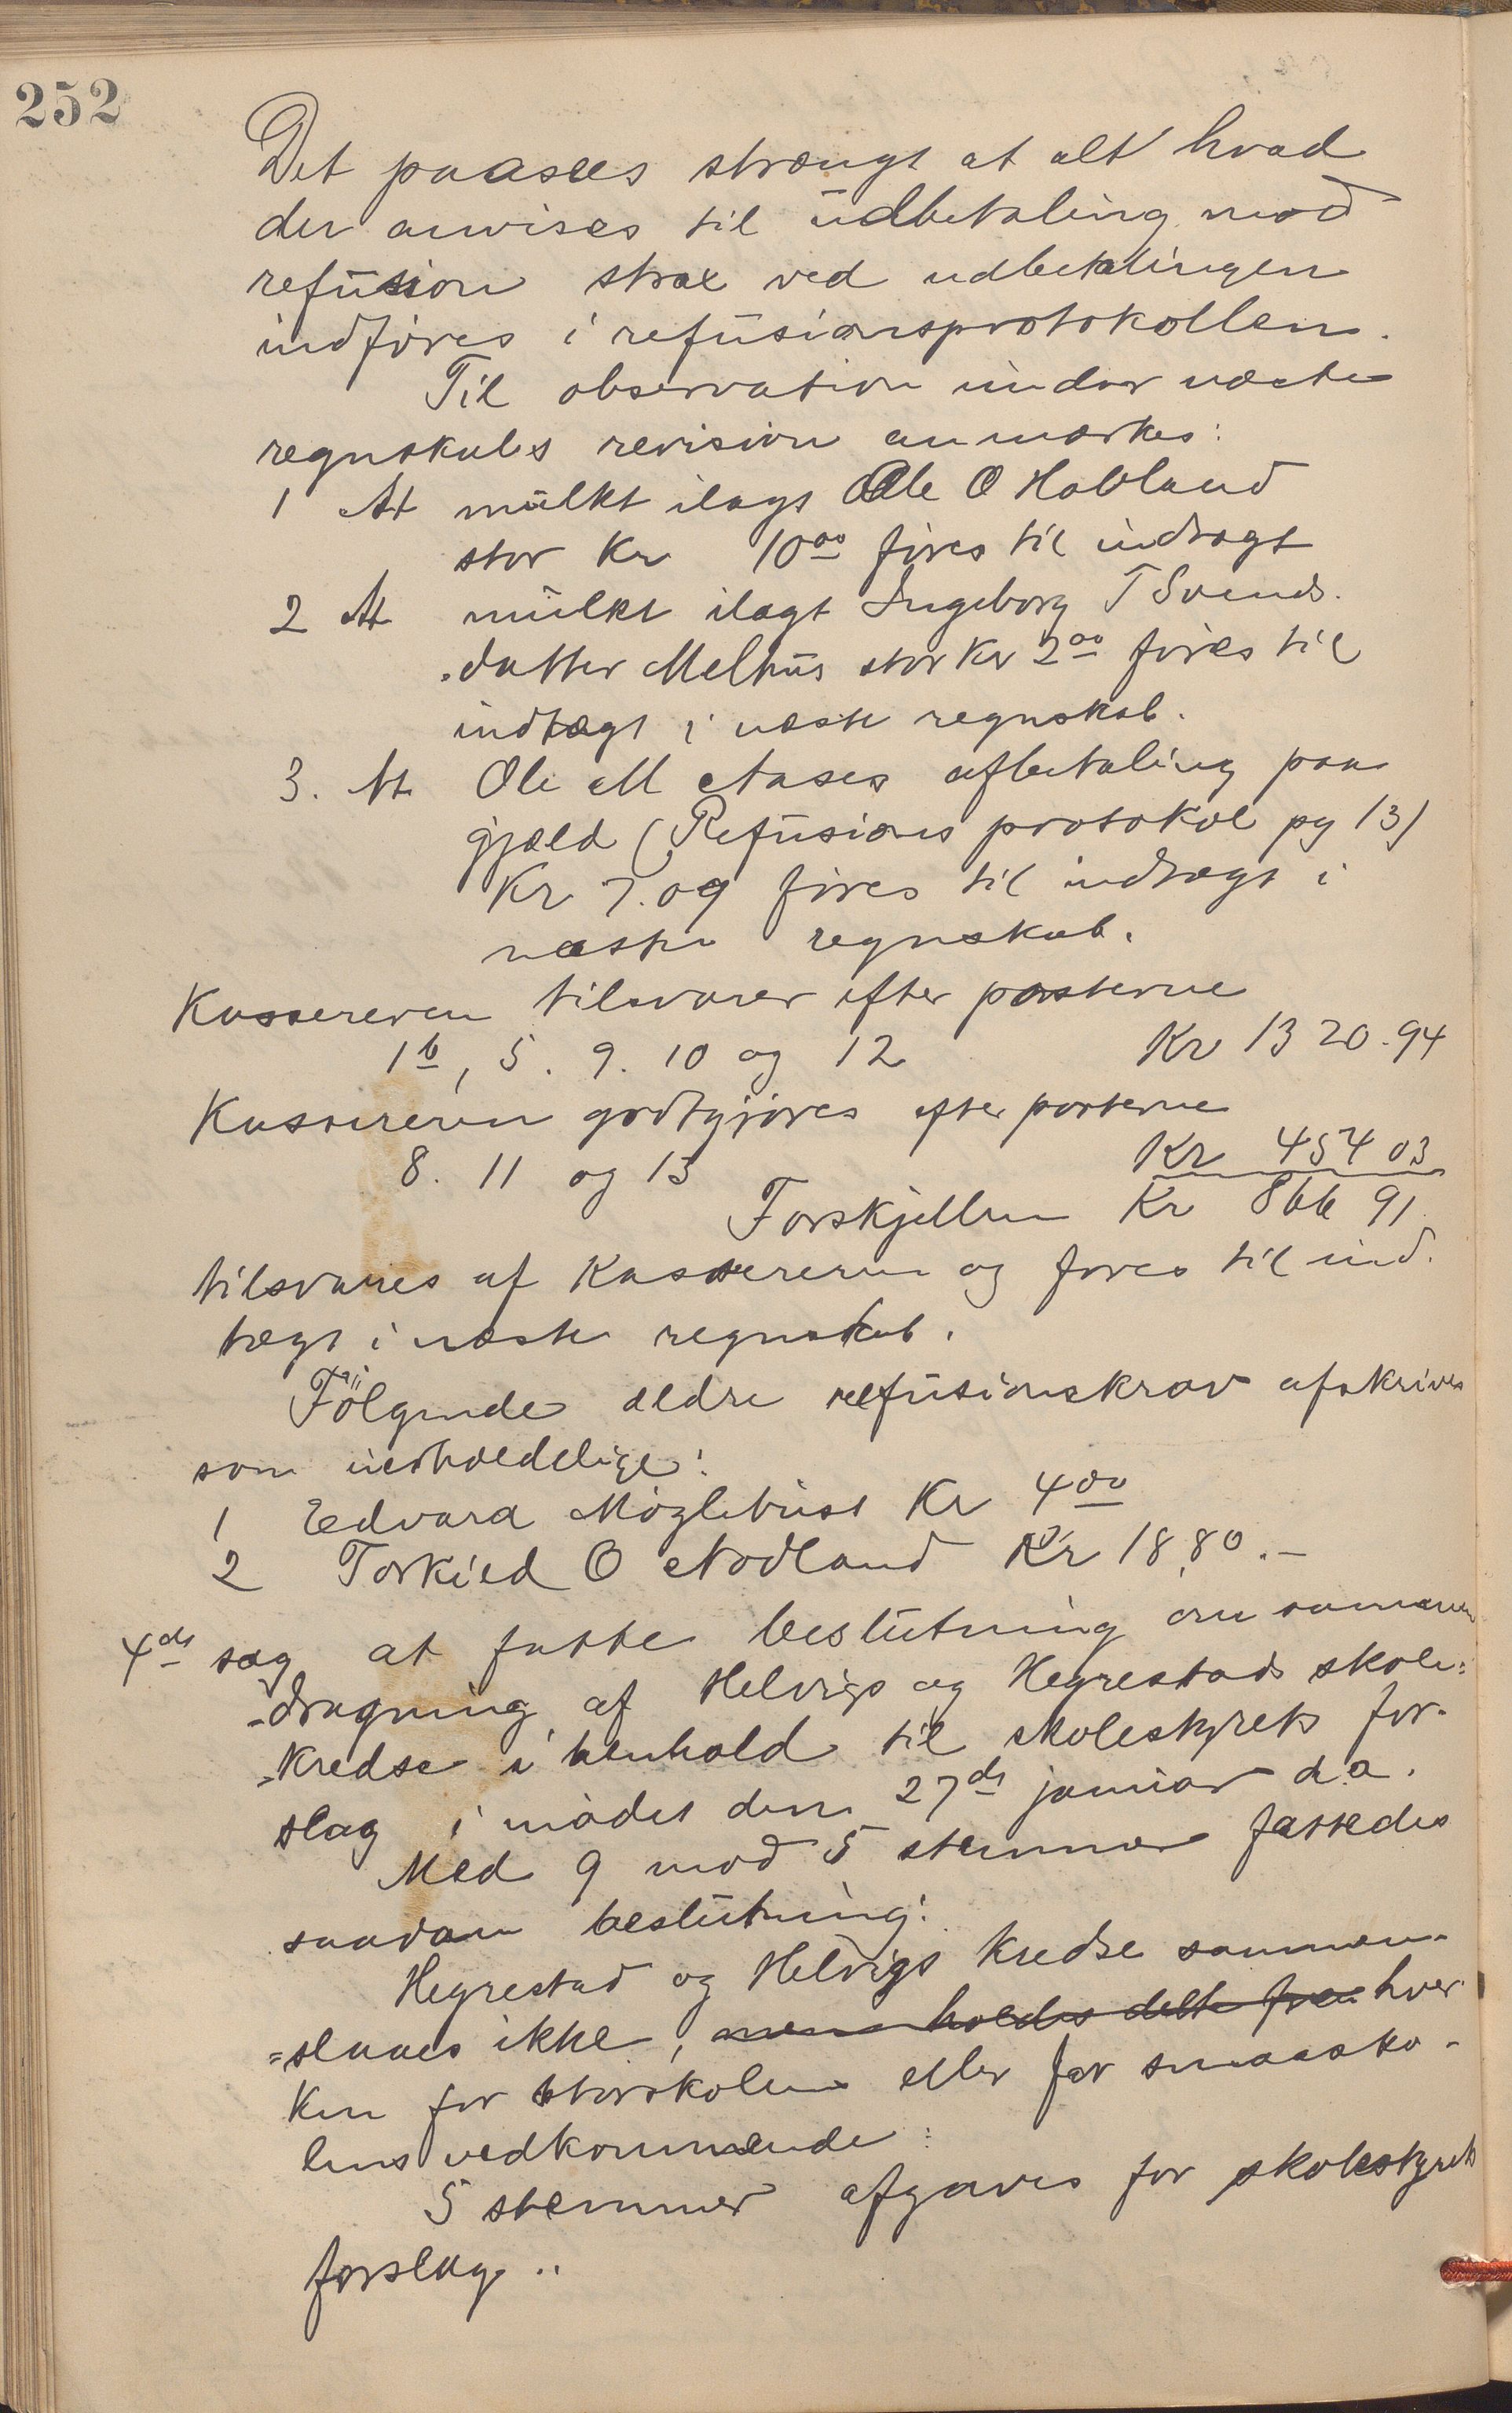 252
Det paasees strængt at alt hvad
der anvises til udbetaling mod
refusion strax ved udbetalingen
indføres i refusionsprotokollen.
Til observation under næste
regnskabs revision anmærkes:
1 At mulkt ilagt Ole O Hovland
stor Kr 10 00 føres til indtægt
2 At mulkt ilagt Ingeborg T Svends.
datter Melhus stor Kr 2 00 føres til
indtægt i næste regnskab.
3. At Ole M Aases afbetaling paa
gjæld (Refusions protokol pg 13)
Kr 7.09 føres til indtægt i
næste regnskab.
Kassereren tilsvarer efter posterne
1 b, 5. 9. 10 og 12 Kr 1320.94
Kassereren godtgjøres efter posterne
8. 11 og 13 Kr 454 03
Forskjellen Kr 866 91
tilsvares af Kassereren og føres til ind.
tægt i næste regnskab.
Følgende ældre refusionskrav afskrives
som uerholdelige:
1 Edvard Møglebust Kr 4 00
2 Torkild O Nodland Kr 18,80.-
4de sag at fatte beslutning om sammen
-dragning af Helvigs og Hegrestads skole=
-kredse i henhold til skolestyrets for-
slag i mødet den 27de januar d.a.
Med 9 mod 5 stemmer fattedes
saadan beslutning:
Hegrestad og Helvigs kredse sammen-
=slaaes ikke, hver
ken for storskolens eller for smaasko-
lens vedkommende:
5 stemmer afgaves for skolestyrets
forslag..